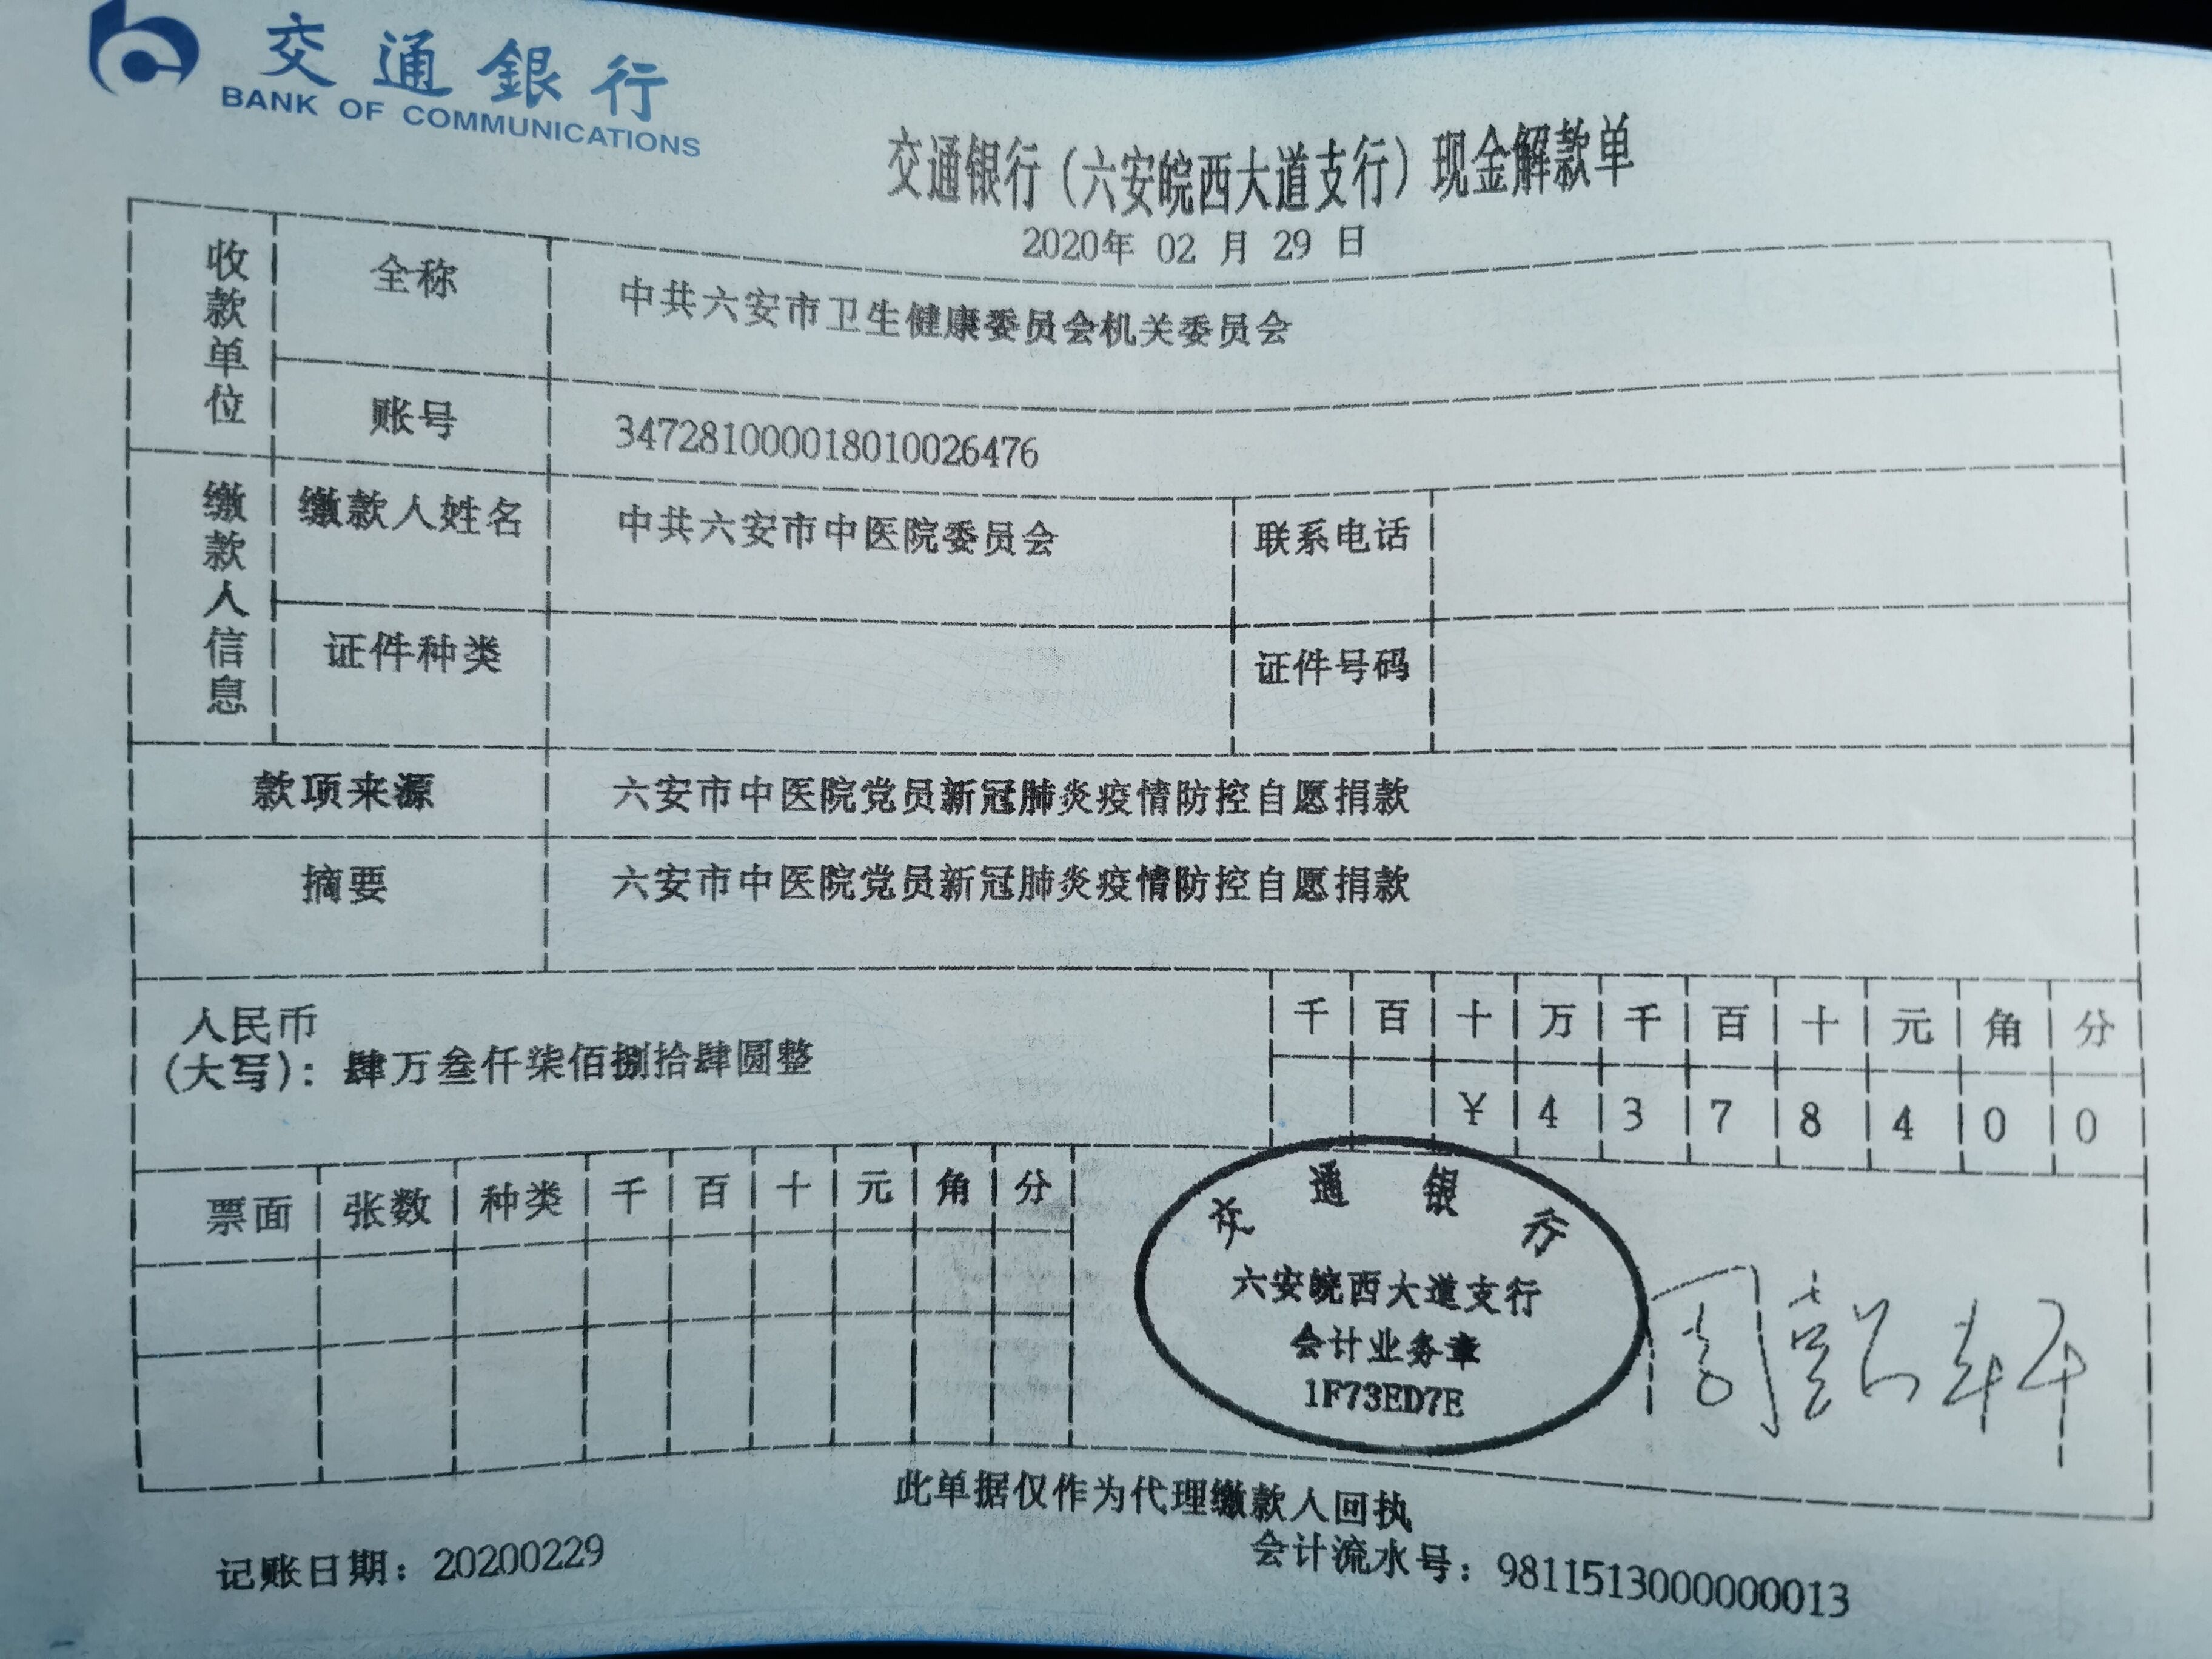 交通銀行
BANK OF COMMUNICATIONS
交通银行（六安皖西大道支行）现金解款单
2020年 02 月 29 日
收款单位
全称 中共六安市卫生健康委员会机关委员会
账号 347281000018010026476
缴款人信息
缴款人姓名 中共六安市中医院委员会 联系电话
证件种类 证件号码
款项来源 六安市中医院党员新冠肺炎疫情防控自愿捐款
摘要 六安市中医院党员新冠肺炎疫情防控自愿捐款
千 百 十 万 千 百 十 元 角 分
人民币
(大写)：肆万叁仟柒佰捌拾肆圆整
¥ 4 3 7 8 4 0 0
票面 张数 种类 千 百 十 元 角 分
交通银行
六安皖西大道支行
会计业务章
1F73ED7E
此单据仅作为代理缴款人回执
记账日期：20200229
会计流水号：9811513000000013